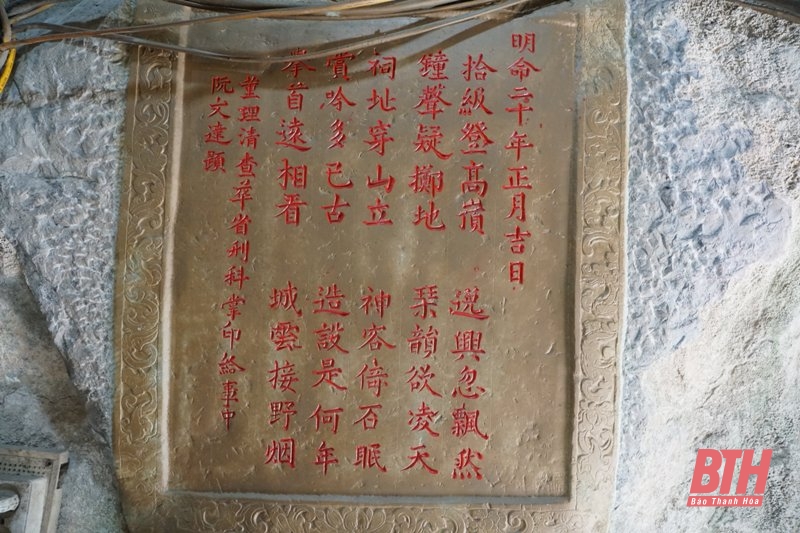 明命二十年正月吉日
拾級登高嶺 逸興忽飄然
鐘聲疑擲地 琹韻欲凌天
祠址穿山立 神容倚石眠
賞吟多已古 造設是何年
首遠相看 城雲接野烟
董理清查萃省刑科掌印給事中
阮文達題
BTH
Báo Thanh Hóa